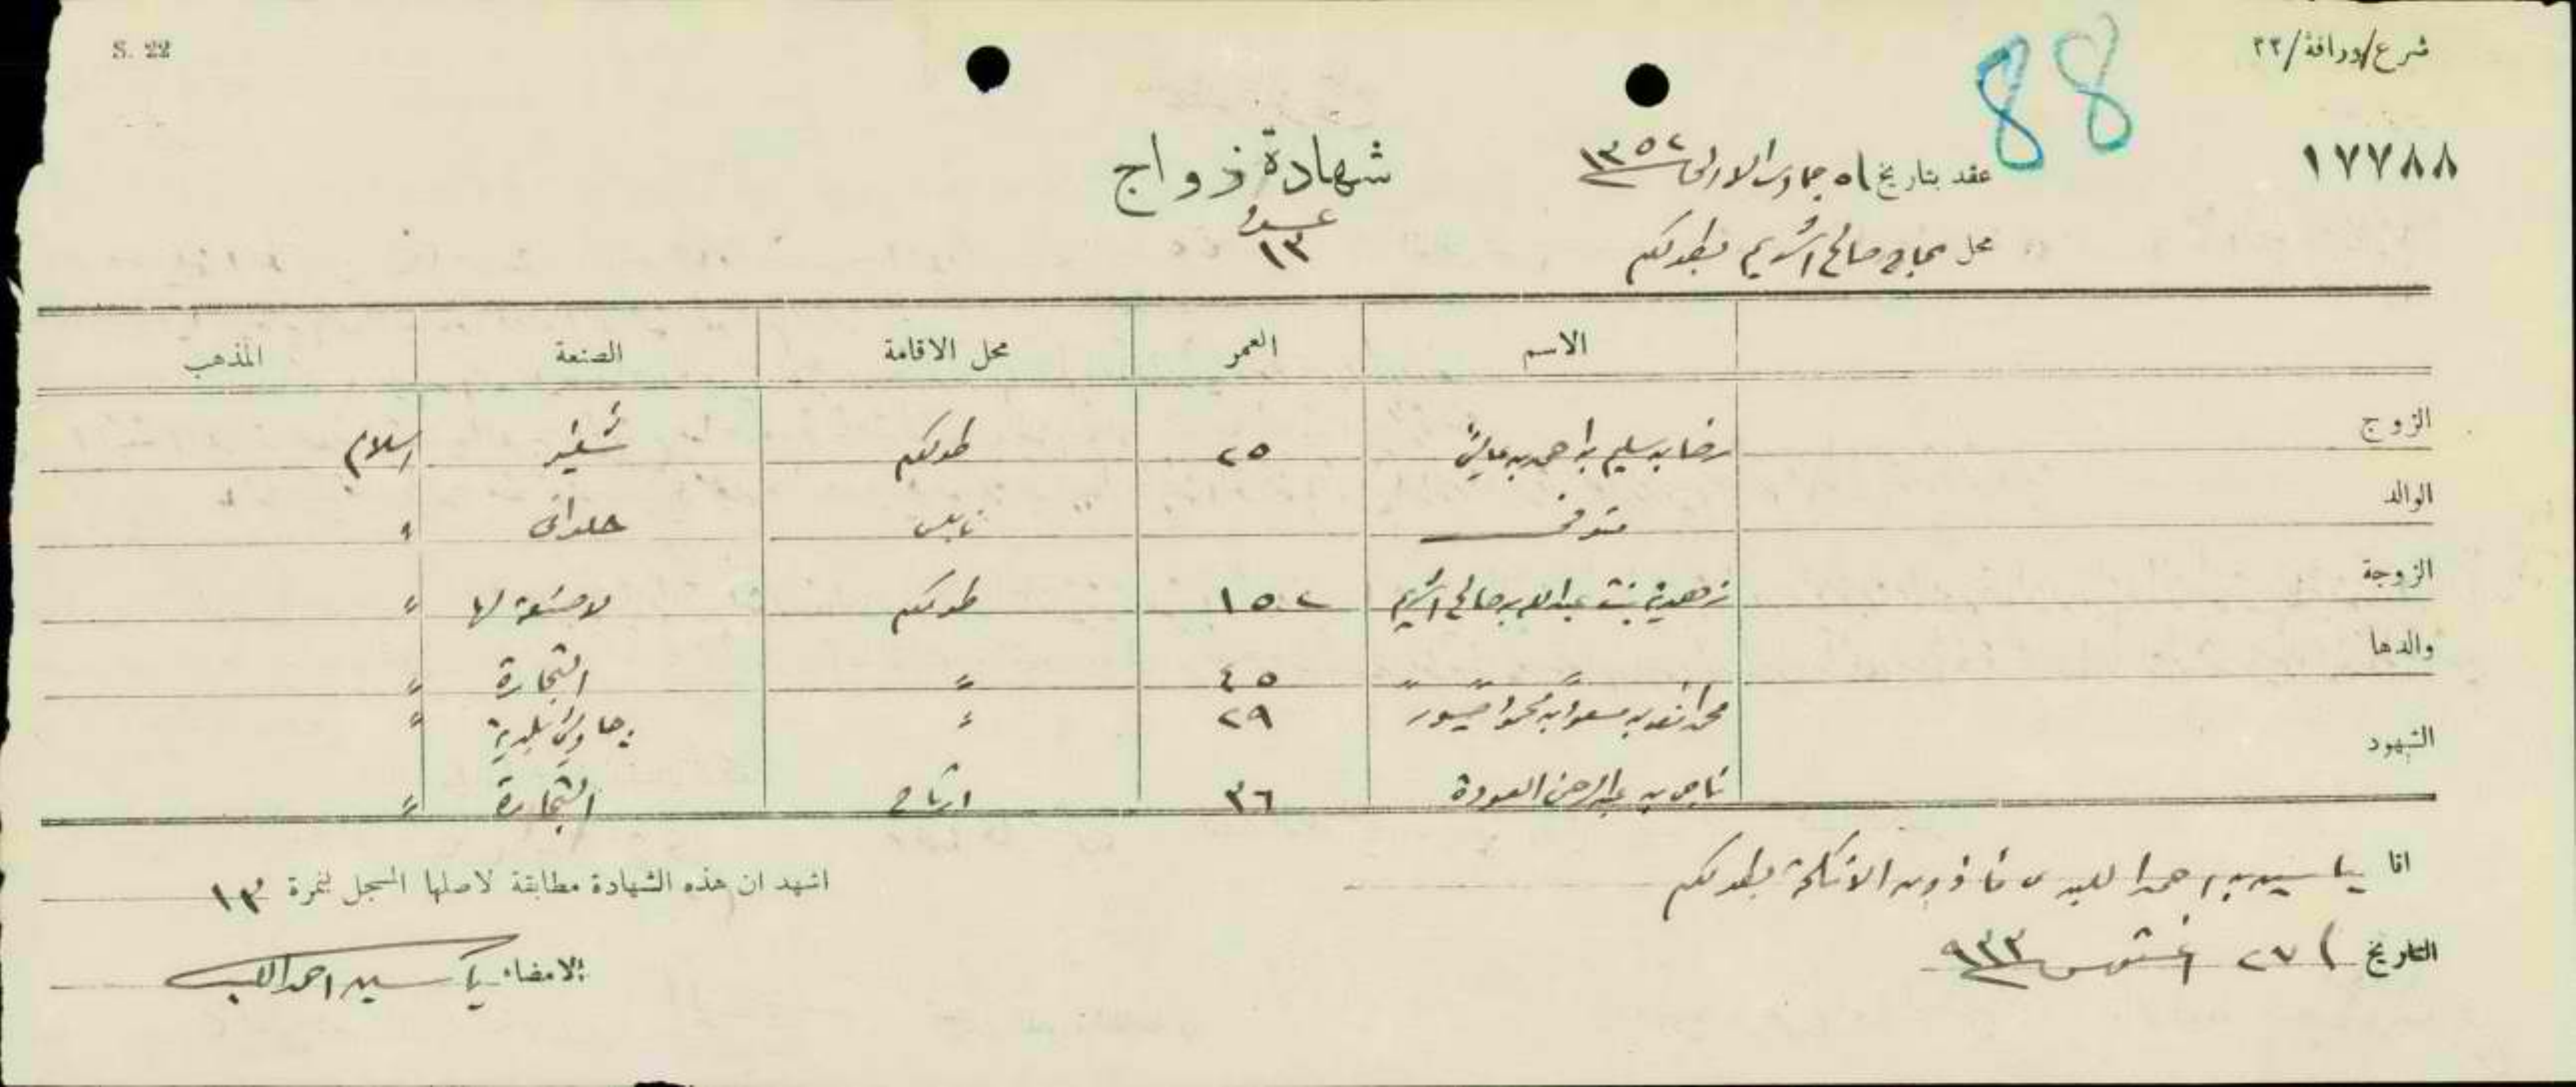 S. 22
شرع/وراقة/٢٢
88
١٧٧٨٨
شهادة زواج
عدد
١٣
عقد بتاريخ ٥ جمادى الاولى ١٣٥٢
محل الحاج صالح اشريم بطولكرم
الاسم العمر محل الاقامة الصنعة المذهب
الزوج رضا بن سليم بن احمد ٢٥ طولكرم اسلام
الوالد متوفى نابلس حلوانى "
الزوجة زهدية بنت عبدالله بن صالح اشريم ١٥ طولكرم لا صنعة لها "
والدها " " " ٤٥ " التجارة "
الشهود محمد بن مسعود بن محمود ٢٩ " بلدية "
ناجى بن عبدالرحمن العودة ٣٦ ارتاح التجارة "
انا ياسين بن احمد اللبدى مأذون الانكحة بطولكرم
اشهد ان هذه الشهادة مطابقة لاصلها المسجل بنمرة ١٣
التاريخ ٢٧ اغستوس ٩٣٣
الامضاء ياسين احمد اللبدي